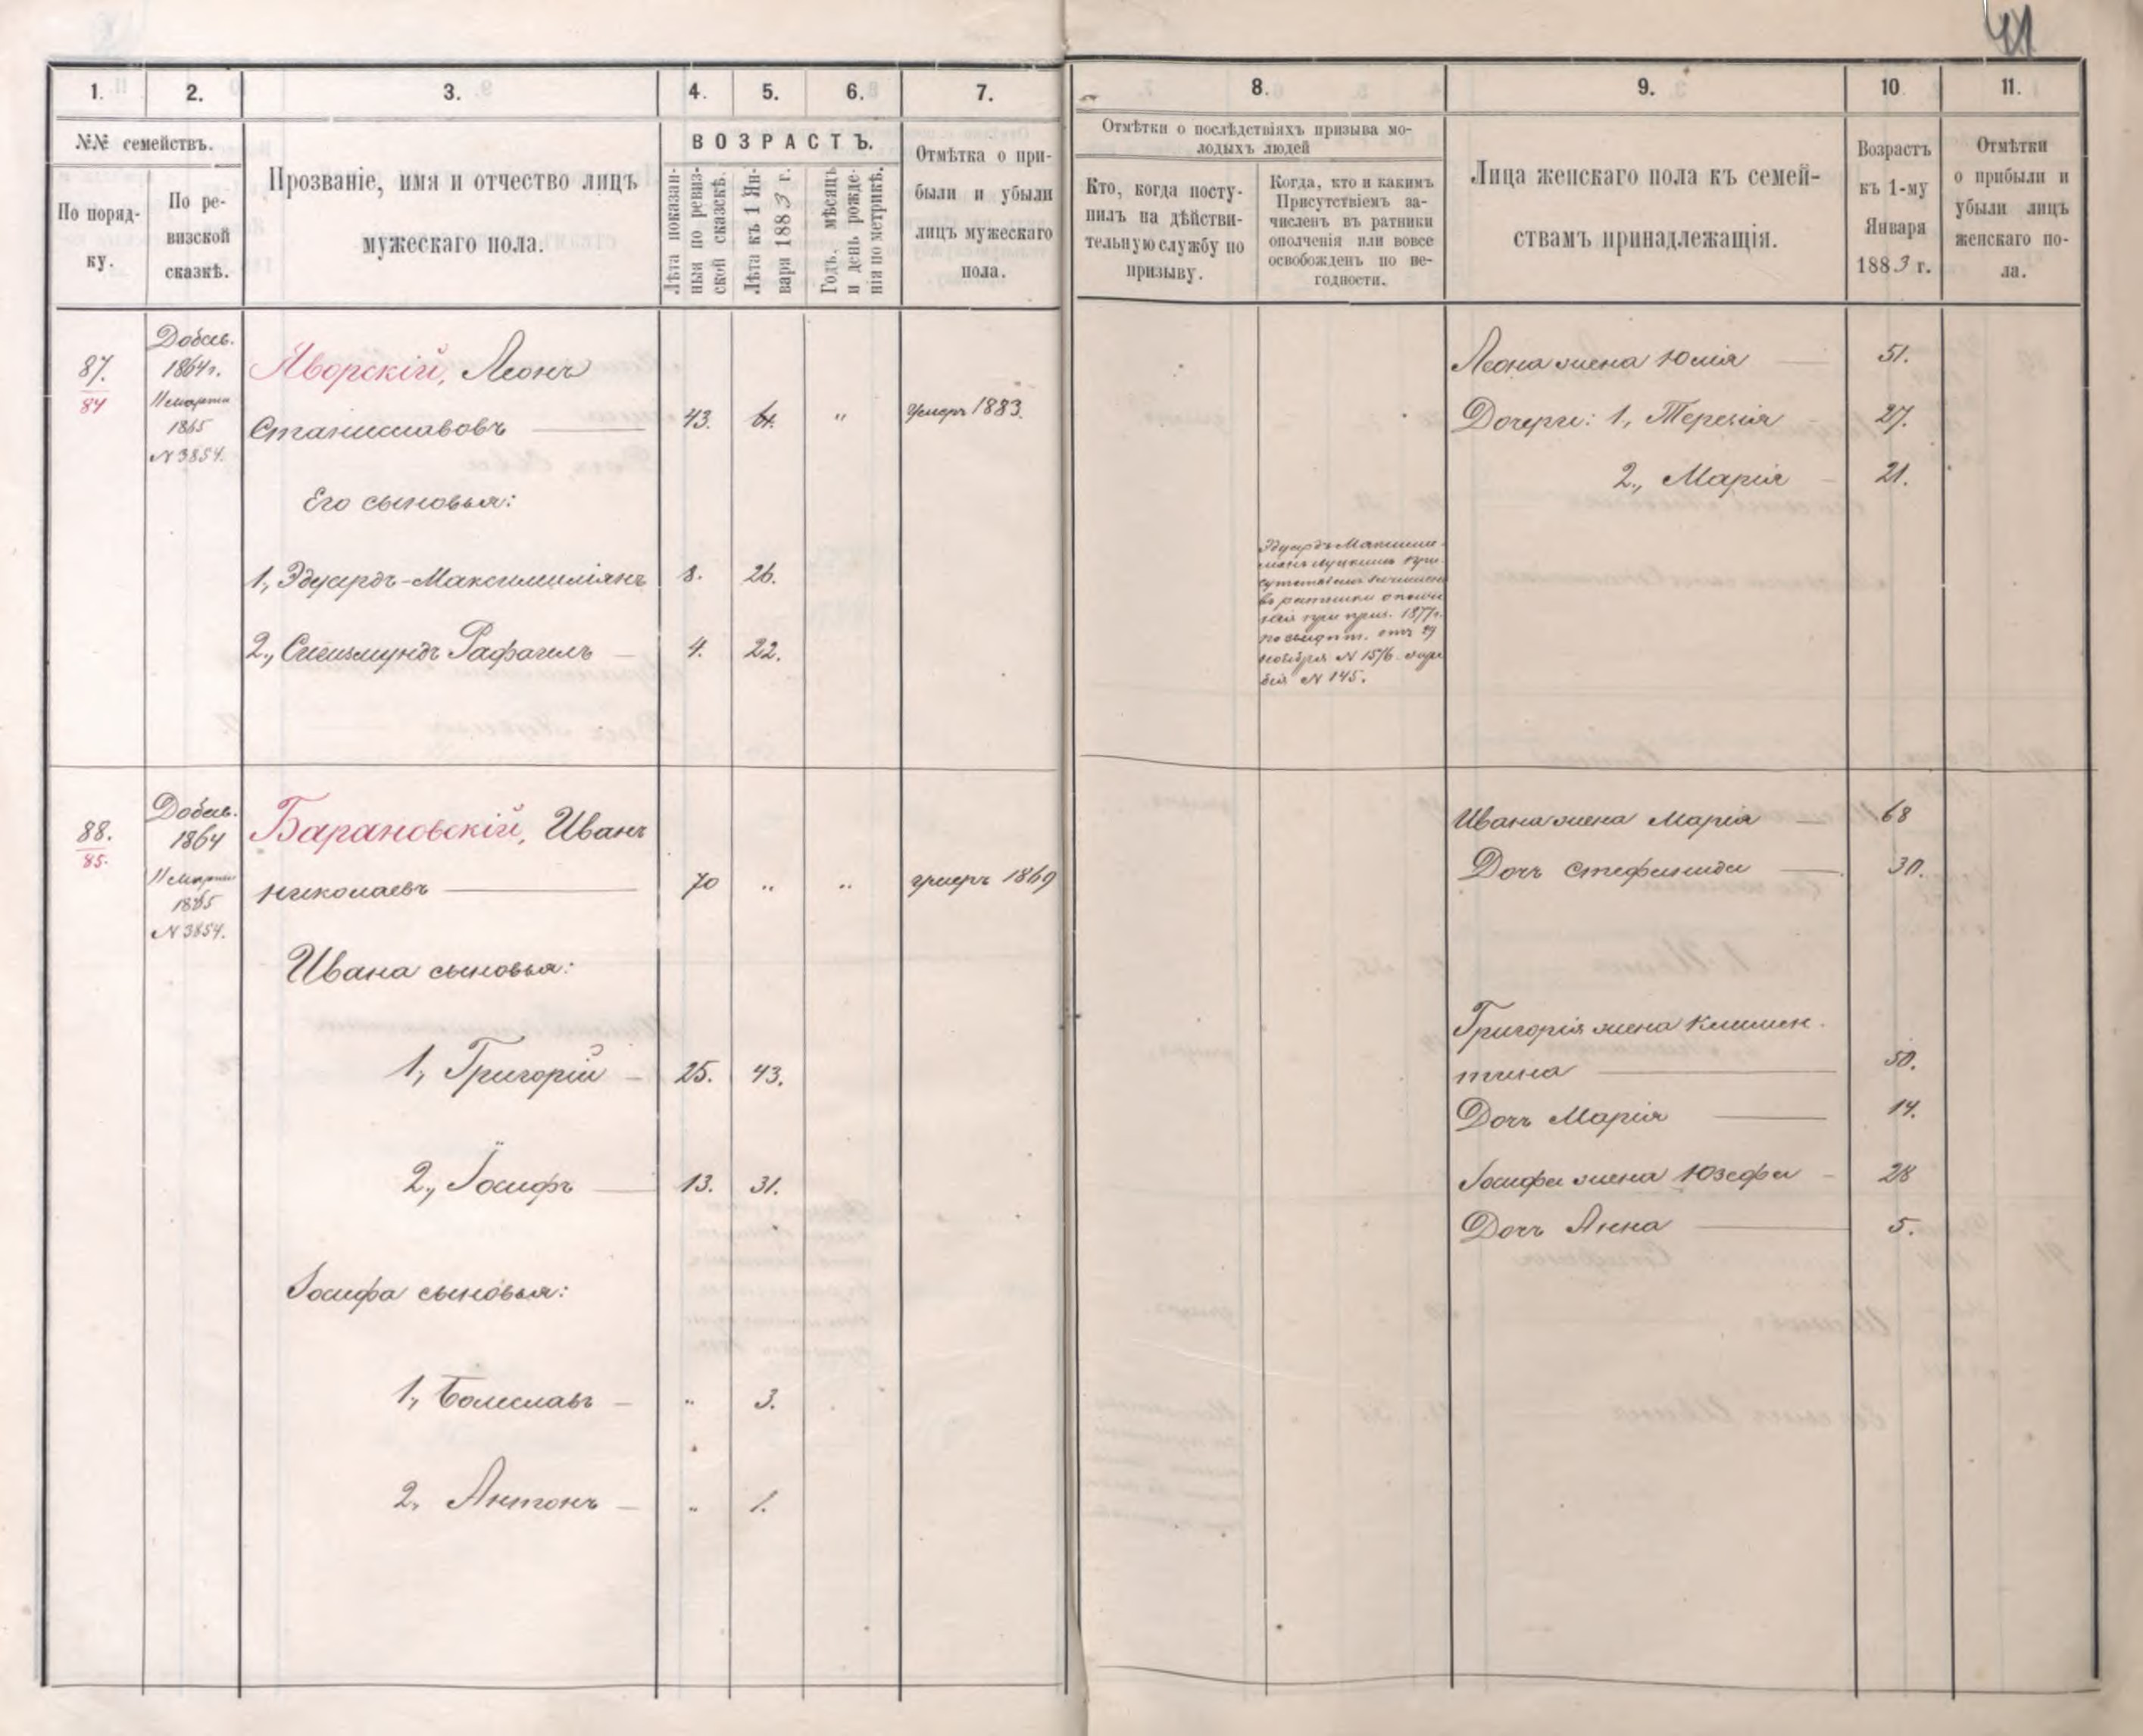 41
1.
2.
3.
4.
5.
6.
7.
8.
9.
10
11.
№№ семействъ.
По поряд-
ку.
По ре-
визской
сказкѣ.
Прозваніе, имя и отчество лицъ
мужескаго пола.
ВОЗРАСТЪ.
Лѣта показан-
ныя по ревиз-
ской сказкѣ.
Лѣта къ 1 Ян-
варя 1883 г.
Годъ, мѣсяцъ
и день рожде-
нія по метрикѣ.
Отмѣтка о при-
были и убыли
лицъ мужескаго
пола.
Отмѣтки о послѣдствіяхъ призыва мо-
лодыхъ людей
Кто, когда посту-
пилъ на дѣйстви-
тельную службу по
призыву.
Когда, кто и какимъ
Присутствіемъ за-
численъ въ ратники
ополченія или вовсе
освобожденъ по не-
годности.
Лица женскаго пола къ семей-
ствамъ принадлежащія.
Возрастъ
къ 1-му
Января
1883 г.
Отмѣтки
о прибыли и
убыли лицъ
женскаго по-
ла.
87.
84
Добав.
1864 г.
11 марта
1865
N 3854.
Яворскій, Леонъ
Станиславовъ 43. 61. " умеръ 1883.
Его сыновья:
1, Эдуардъ-Максимиліянъ 8. 26.
2, Сигизмундъ Рафаилъ 4. 22.
Эдуардъ Максими-
въ ратники ополче
нія при приз. 1877 г.
отъ 29
ноября N 1576.
N 145.
Леона жена Юлія 51.
Дочери: 1, Терезія 27.
2, Марія 21.
88.
85.
Добав.
1864
11 марта
1865
N 3854.
Барановскій, Иванъ
Николаевъ 70 " " умеръ 1869
Ивана сыновья:
1, Григорій 25. 43.
2, Іосифъ 13. 31.
Іосифа сыновья:
1, Болеславъ " 3.
2, Антонъ " 1.
Ивана жена Марія 68
Дочь Стефанида 30.
Григорія жена Клемен-
тина 50.
Дочь Марія 14.
Іосифа жена Юзефа 28
Дочь Анна 5.